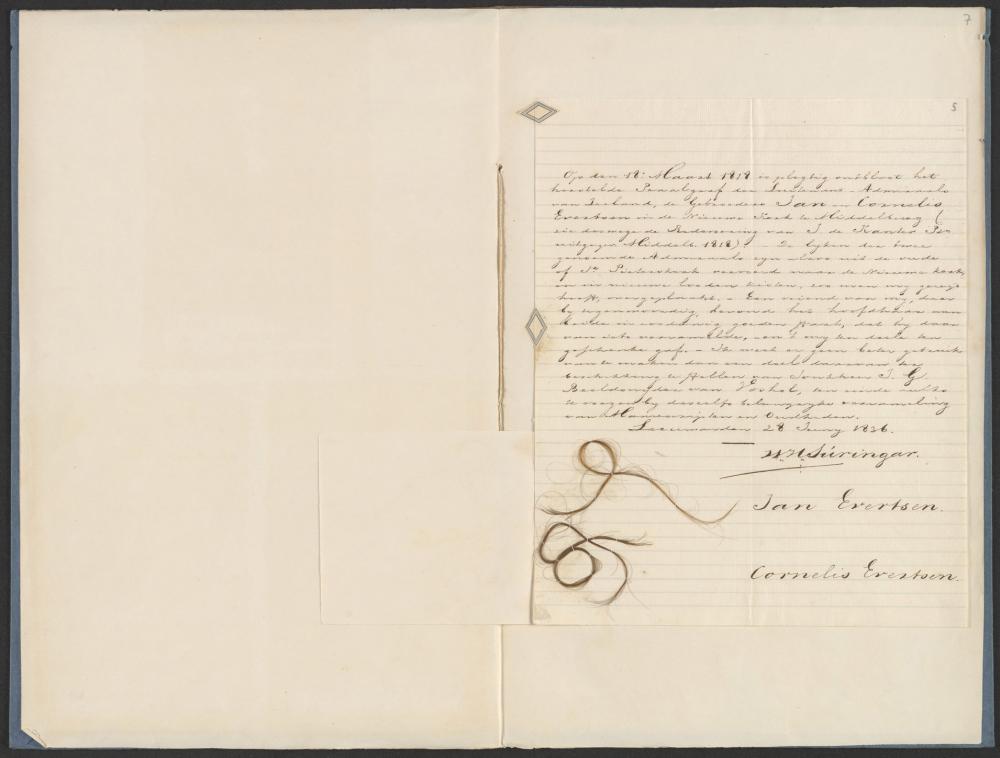 7
5
Op den 18n Maart 1818 is plegtig ontbloot het
herstelde Praalgraf der Luitenant-Admiraals
van Zeeland, de Gebroeders Jan en Cornelis
Evertsen in de Nieuwe Kerk te Middelburg (
zie deswege de Redevoering van J. de Kanter Pz
uitgegev. Middelb. 1818). - De lijken der twee
genoemde Admiraals zijn alvos uit de oude
of St. Pieterskerk vervoerd naar de Nieuwe kerk
en in nieuwe looden kisten, zoo men mij gezegd
heeft, overgeplaatst. - Een vriend van mij, daar
bij tegenwoordig, bevond het hoofdhaar van
beide in zoodanig goeden staat, dat hij daar
van iets verzamelde, en 't mij ten deele ten
geschenke gaf. - Ik weet er geen beter gebruik
van te maken dan een deel daarvan ter
beschikking te stellen van Jonkheer J. G.
Beeldsnyder van Voshol, ten einde zulks
te voegen bij deszelfs belangrijke verzameling
van Manuscripten en Oudheden.
Leeuwarden 28 Juny 1836.
W. H. Suringar.
Jan Evertsen.
Cornelis Evertsen.